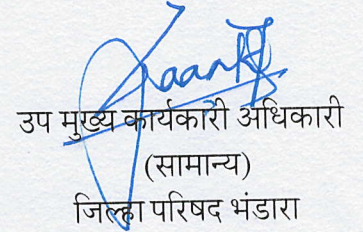 उप मुख्य कार्यकारी अधिकारी
(सामान्य)
जिल्हा परिषद भंडारा